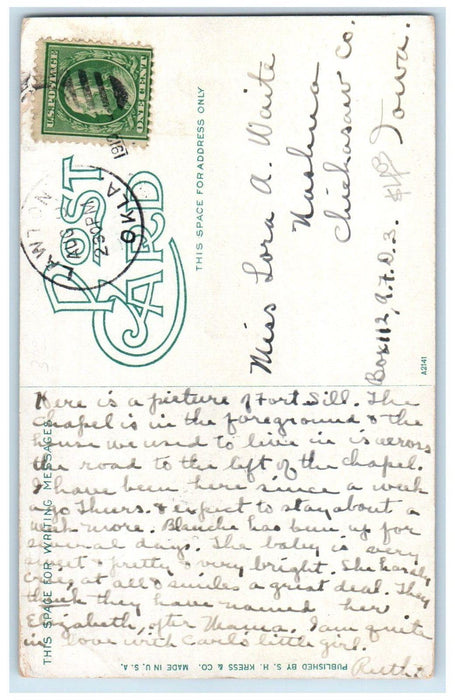 U.S. POSTAGE
ONE CENT
LAWTON
AUG
2 30 PM
OKLA
POST CARD
THIS SPACE FOR ADDRESS ONLY
Miss Lora A. Waite
Nashua
Chickasaw Co.
Iowa.
Box 112, R.F.D. 3.
A2141
THIS SPACE FOR WRITING MESSAGES
Here is a picture of Fort Sill. The
chapel is in the foreground & the
house we used to live in is across
the road to the left of the chapel.
I have been here since a week
ago Thurs. & expect to stay about a
week more. Blanche has been up for
several days. The baby is very
sweet & pretty & very bright. She hardly
cries at all & smiles a great deal. They
think they have named her
Elizabeth, after Mama. I am quite
in love with Carl's little girl.
Ruth.
PUBLISHED BY S. H. KRESS & CO. MADE IN U. S. A.